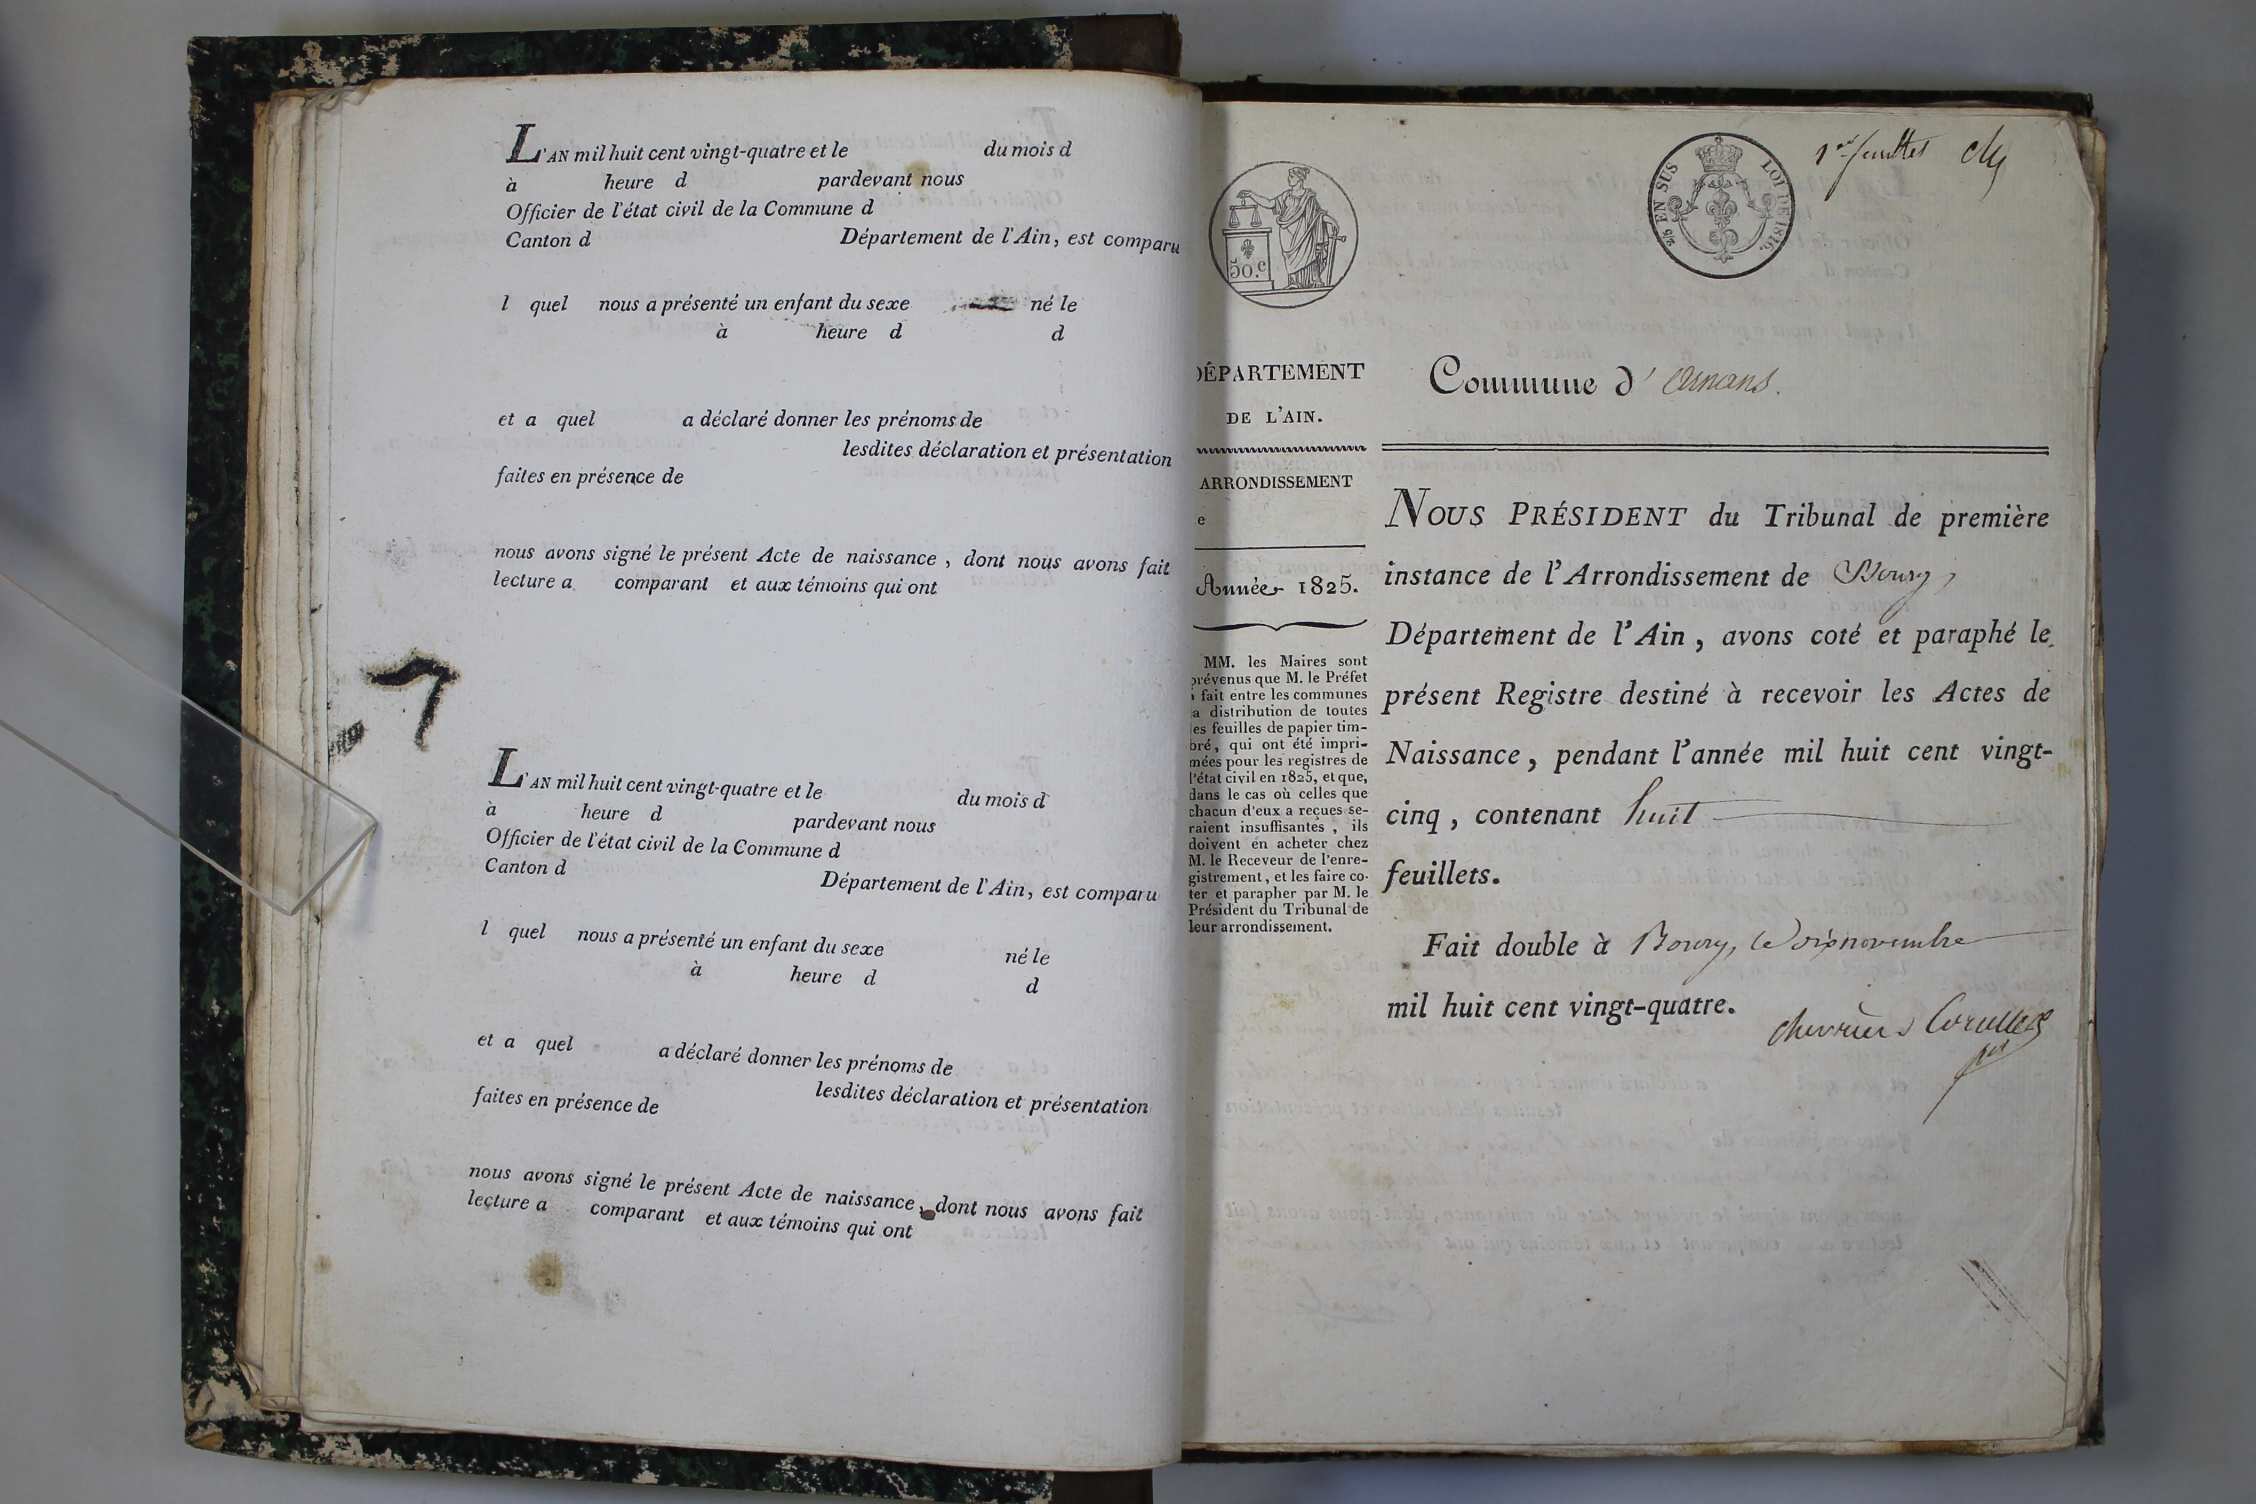 L'AN mil huit cent vingt-quatre et le du mois d
à heure d pardevant nous
Officier de l'état civil de la Commune d
Canton d Département de l'Ain, est comparu
l quel nous a présenté un enfant du sexe né le
à heure d d
et a quel a déclaré donner les prénoms de
lesdites déclaration et présentation
faites en présence de
nous avons signé le présent Acte de naissance, dont nous avons fait
lecture a comparant et aux témoins qui ont
L'AN mil huit cent vingt-quatre et le du mois d
à heure d pardevant nous
Officier de l'état civil de la Commune d
Canton d Département de l'Ain, est comparu
l quel nous a présenté un enfant du sexe né le
à heure d d
et a quel a déclaré donner les prénoms de
lesdites déclaration et présentation
faites en présence de
nous avons signé le présent Acte de naissance, dont nous avons fait
lecture a comparant et aux témoins qui ont
50.c
EN SUS LOI DE 1816.
1er feuillet
DÉPARTEMENT
DE L'AIN.
ARRONDISSEMENT
e
Année 1825.
MM. les Maires sont
prévenus que M. le Préfet
a fait entre les communes
la distribution de toutes
les feuilles de papier tim-
bré, qui ont été impri-
mées pour les registres de
l'état civil en 1825, et que,
dans le cas où celles que
chacun d'eux a reçues se-
raient insuffisantes, ils
doivent en acheter chez
M. le Receveur de l'enre-
gistrement, et les faire co-
ter et parapher par M. le
Président du Tribunal de
leur arrondissement.
Commune d' arnans.
NOUS PRÉSIDENT du Tribunal de première
instance de l'Arrondissement de Bourg,
Département de l'Ain, avons coté et paraphé le
présent Registre destiné à recevoir les Actes de
Naissance, pendant l'année mil huit cent vingt-
cinq, contenant huit
feuillets.
Fait double à Bourg, le six novembre
mil huit cent vingt-quatre.
chevrier Corcelles